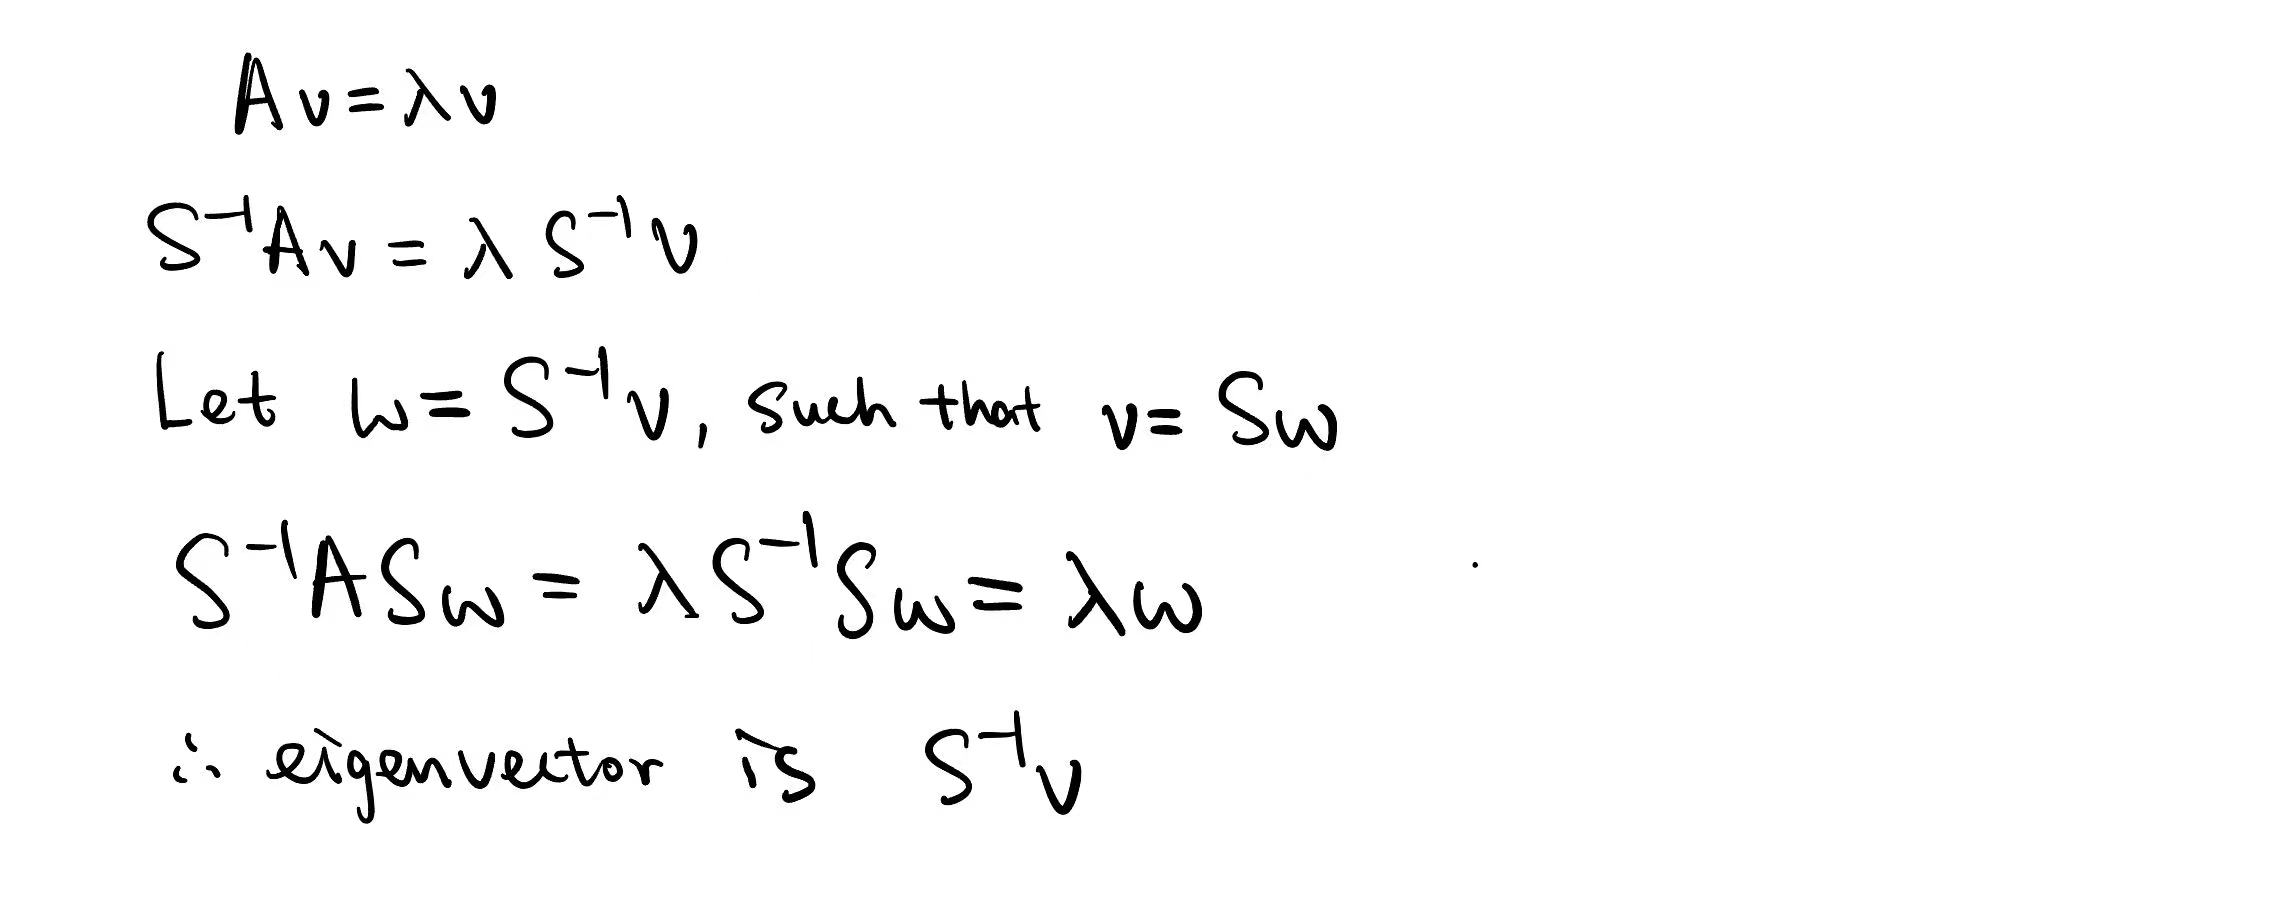 Av = λv
S⁻¹Av = λ S⁻¹v
Let w = S⁻¹v, such that v = Sw
S⁻¹ASw = λS⁻¹Sw = λw
∴ eigenvector is S⁻¹v